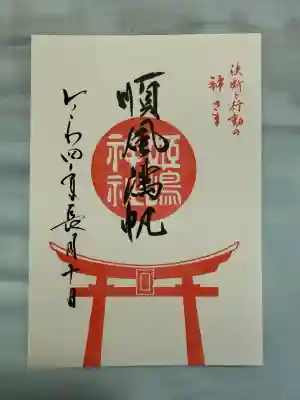 決断と行動の
神さま
順風満帆
嶋
神社
令和四年長月十日